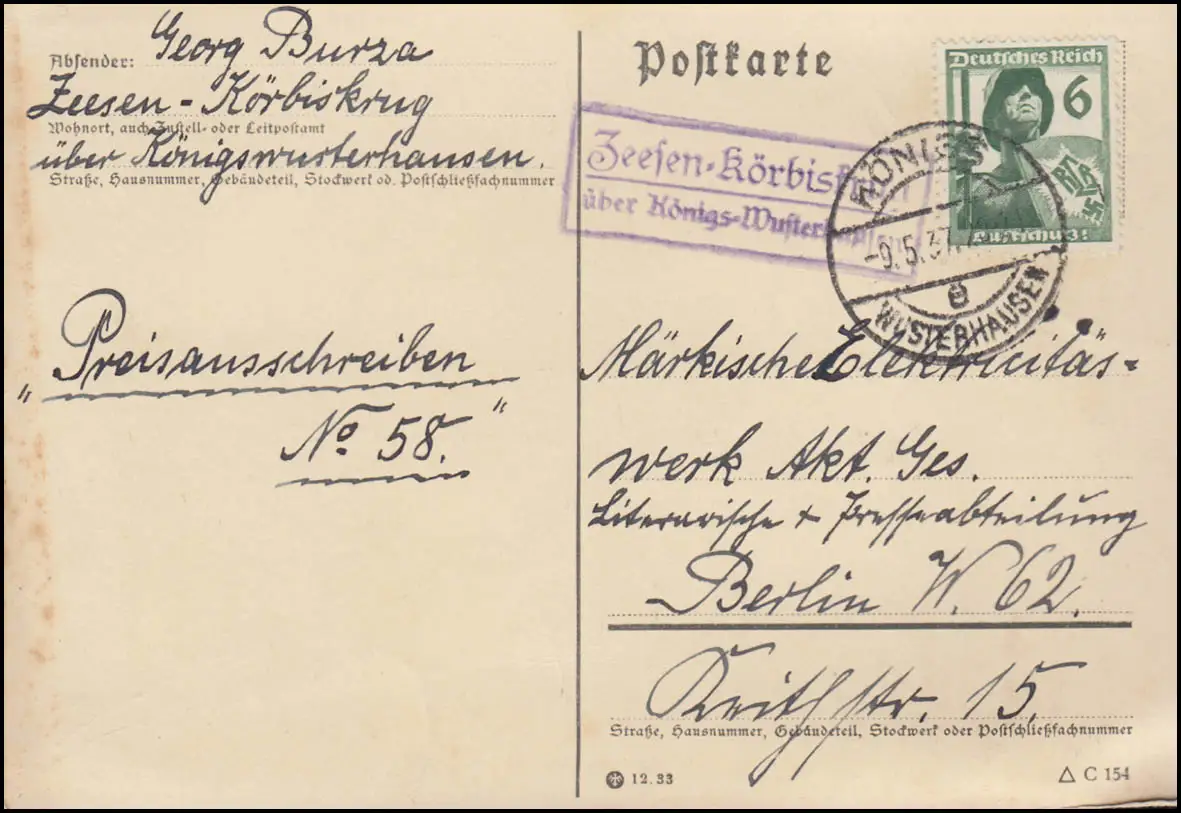 Absender: Georg Burza
Zeesen - Körbiskrug
Wohnort, auch Zustell- oder Leitpostamt
über Königswusterhausen.
Straße, Hausnummer, Gebäudeteil, Stockwerk od. Postschließfachnummer
"Preisausschreiben
No 58."
Postkarte
Deutsches Reich
6
RLB
Luftschutz!
Zeesen-Körbiskrug
über Königs-Wusterhausen
KÖNIGS
-9.5.37.
e
WUSTERHAUSEN
Märkische Elektricitäs-
werk Akt. Ges.
Literarische + Presseabteilung
Berlin W. 62.
Keithstr. 15.
Straße, Hausnummer, Gebäudeteil, Stockwerk oder Postschließfachnummer
12.33
C 154